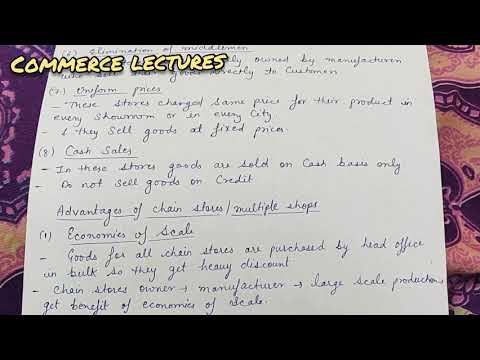 COMMERCE LECTURES
(6) Elimination of middlemen
owned by manufacturer
directly to Customer
(7.) Uniform prices
- These stores charged same price for their product in
every Showroom or in every City
- & they Sell goods at fixed prices
(8) Cash Sales
- In these stores goods are sold on Cash basis only
- Do not sell goods on Credit
Advantages of chain stores/multiple shops
(1) Economies of Scale
- Goods for all chain stores are purchased by head office
in bulk so they get heavy discount
- Chain stores owner → manufacturer → large scale production
get benefit of economies of scale.